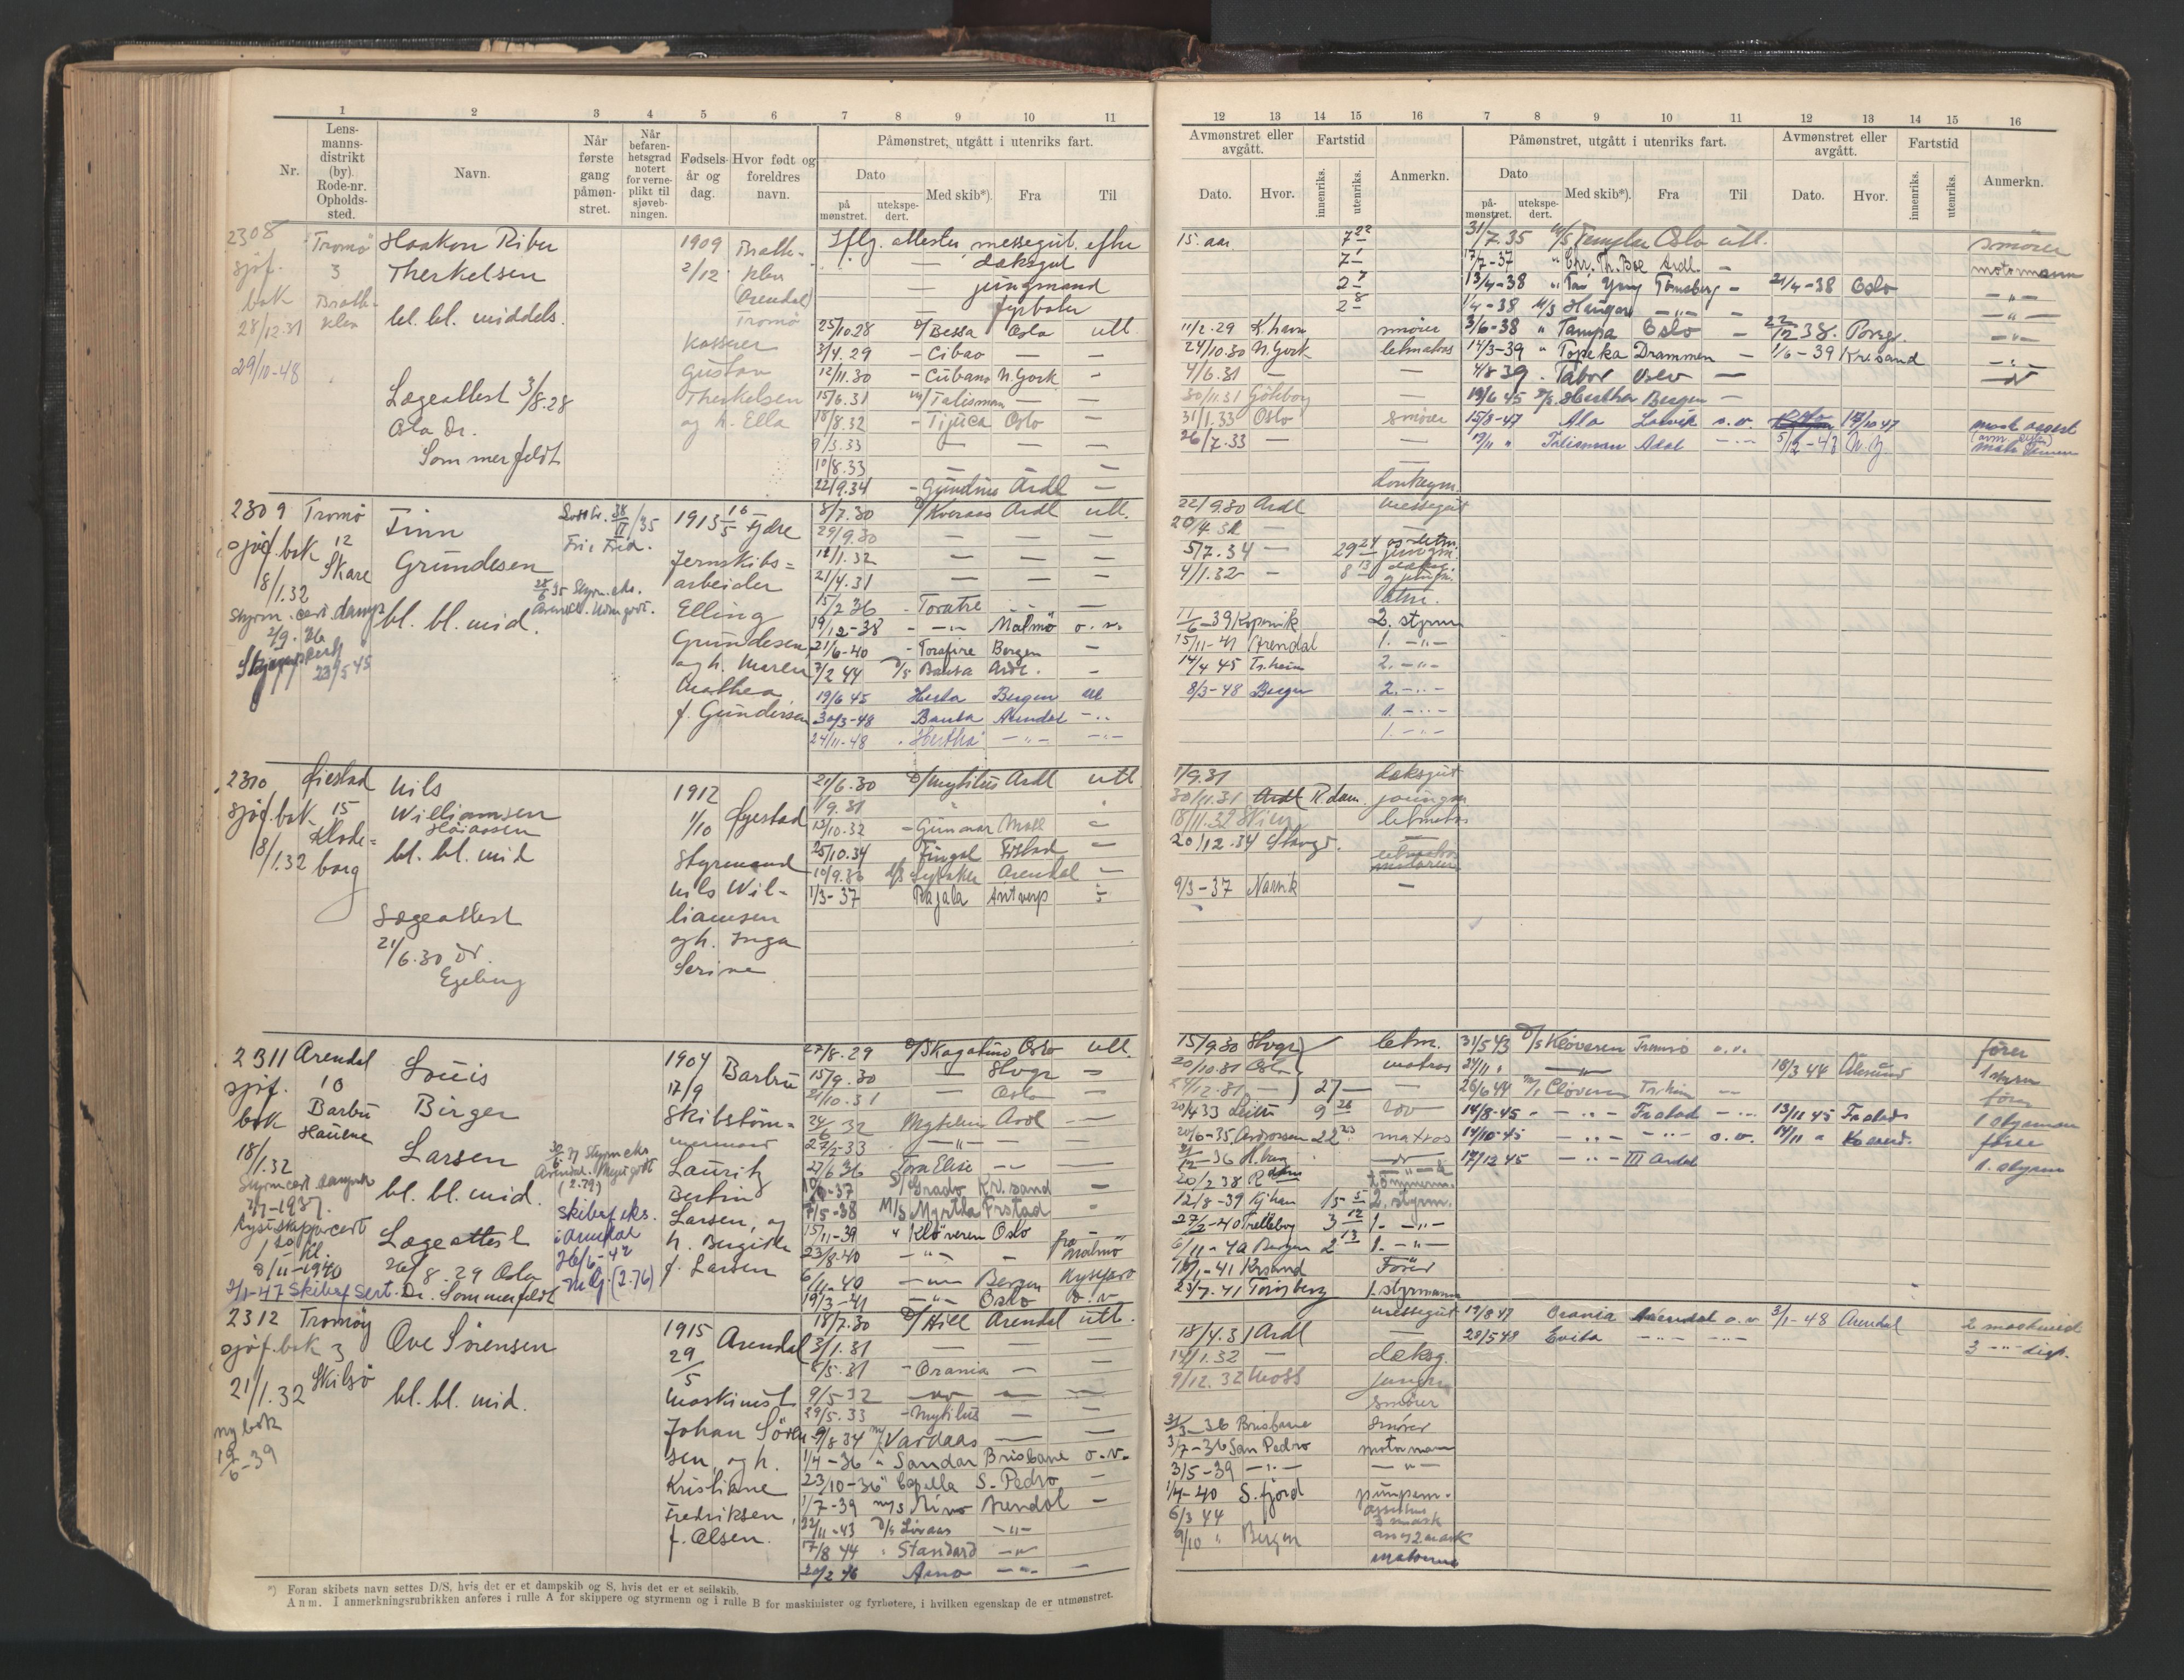 1 2 3 4 5 6 7 8 9 10 11
Nr. Lensmannsdistrikt (by). Rode-nr. Oppholdssted. Navn. Når første gang påmønstret. Når befarenhetsgrad notert for verneplikt til sjøvebningen. Fødselsår og dag. Hvor født og foreldres navn.
Påmønstret, utgått i utenriks fart.
Dato Med skib*). Fra Til
på mønstret. utekspedert.
2308 Tromö Haakon Ribu 1909 Bratteklev
sjöf. 3 Therkelsen 2/12 (Arendal)
bok Bratteklev bl. bl. middels. Tromö
28/12.31
29/10-48
Kasserer
Gustav
Therkelsen
og h. Ella
Lægeattest 3/8-28
Oslo Dr.
Sommerfeldt
Iflg. attester messegut. efter
— dæksgut
— jungmand
— fyrböter
25/10.28 D/ Bessa Oslo utl.
3/4.29 - Cibao — —
12/11.30 - Cubano N. York -
15/6.31 M/ Talisman — —
18/8.32 - Tijuca Oslo —
9/3.33 — — —
10/8.33 — — —
22/9.34 - Gundine Ardl —
2309 Tromö Finn 1913 Fjære
sjöf. bok 12 Grundesen
18/1.32 Skare bl. bl. mid.
Styrm. cert. damp
2/9.36
23/5 45
Jernskibsarbeider
Elling
Grundesen
og h. Maren
Mathea
f. Gundersen
8/7.30 D/ Kveraas Ardl utl.
29/9.30 — — —
12/1.32 — — —
21/4.31 — — —
15/2 36 - Toratre — —
19/12-38 - „ - Malmö o. v.
21/6-40 - Torafire Bergen -
7/2 44 D/S Bausa Ardl. -
19/6 45 Herta Bergen utl
30/3-48 Bausa Arendal - „
24/11-48 „ Hertha - „ - - „ -
2310 Øiestad Nils 1912 Øyestad
sjöf. bok 15 Williamsen 1/10
18/1.32 Klodeborg Håiaasen
bl. bl. mid
Lægeattest
21/6.30 Dr.
Egeberg
Styrmand
Nils Williamsen
og h. Inga
Serine
21/6.30 D/ Mytilus Ardl utl
1/9.31 „ „
13/10.32 - Gunnar Moss -
25/10.34 Fingal Frstad -
10/9.36 d/s Lysaker Arendal —
1/3-37 Rajala Antwerp -
2311 Arendal Louis 1904 Barbu
sjöf. 10 Birger 17/9
bok Barbu Larsen
18/1.32 bl. bl. mid.
Styrmcert. damp
Kystskippercert
1 kl.
8/11-1940
2/1-47 Skibsf sert.
Lægeattest
26/8.29 Oslo
Dr. Sommerfeldt
Skibsf eks.
i Arendal
26/6-42
M.G. (2.76)
Skibstömmermand
Lauritz
Bertin
Larsen, og
h. Birgitte
f. Larsen
27/8.29 D/ Skagatind Oslo utl.
15/9.30 — Stvgr —
21/10.31 — Oslo —
24/6 32 Mytilus Ardl —
27/2-33 - „ - —
27/6 36 Tora Elise - - —
-37 D/ Grado Kr.sand —
7/5-38 M/S Myrtla Frstad -
15/11-39 „ Klöveren Oslo -
23/8-40 - „ - - fra Malmö
6/11-40 - „ - Bergen Kystfart
19/3-41 - „ - Oslo o. v
2312 Tromöy Ove Sörensen 1915 Arendal
sjöf. bok 3 29/5
21/1.32 Skilsö bl. bl. mid.
ny bok
19/6-39
Maskinist
Johan Sörensen
og h.
Kristiane
Fredriksen,
f. Olsen.
18/7.30 D/ Hill Arendal utl.
3/1.31 — — —
5/5.31 - Orania -
9/5-32 - „ - — —
29/5.33 - Mytilus — —
9/8 34 M/ Vardaas — —
1/4-36 „ Sandar Brisbane o.v.
23/10-36 „ Capella S. Pedro —
1/7-39 m/s Nino Arendal —
22/11-43 D/S Livaas - „ -
17/8 44 „ Standard - „ -
20/2 46 Arna - „ - —
*) Foran skibets navn settes D/S, hvis det er et dampskib og S, hvis det er et seilskib.
Anm. I anmerkningsrubrikken anføres i rulle A for skippere og styrmenn og i rulle B for maskinister og fyrbøtere, i hvilken egenskap de er utmønstret.
12 13 14 15 16 7 8 9 10 11 12 13 14 15 16
Avmønstret eller avgått. Fartstid Anmerkn. Påmønstret, utgått i utenriks fart. Avmønstret eller avgått. Fartstid Anmerkn.
Dato. Hvor. innenriks. utenriks. Dato Med skib*). Fra Til Dato. Hvor. innenriks. utenriks.
på-mønstret. utekspedert.
15. aar. 7 22 31/7.35 M/S Templar Oslo utl. smörer
7 1 17/7-37 „ Chr. Th. Boe Ardl. — motormann
2 7 13/4-38 „ Tai Ying Tönsberg - 21/4-38 Oslo - „ -
2 8 1/4-38 M/S Hangar - „ - — - „ -
11/2.29 K.havn smörer 3/6-38 „ Tampa Oslo — 22/12 38. Porsgr. - „ -
24/10.30 N. York letmatros 14/3-39 „ Topeka Drammen — 1/6-39 Kr.sand - „ -
4/6.31 — — 4/8 39 „ Tabor Oslo —
30/11.31 Göteborg 19/6 45 D/S Hertha Bergen —
31/1.33 Oslo smörer 15/8-47 Ala Larvik o.v. 17/10 47 mask assist
26/7.33 — — 19/11 „ Talisman Ardl - „ - 5/12-47 N.Y.
donkeym.
22/9.30 Ardl messegut
20/4.31 —
5/7.34 — 29 24
4/1.32 - 8 13
11/6-39 Kopervik 2. styrm
15/11-41 Arendal 1. - „ -
14/4 45 Tr.heim 2. - „ -
8/3-48 Bergen 2. - „ -
1. - „ -
1. - „ -
1/9.31 dæksgut
30/11.31 R.dam. joungm
18/11.32 Skien letmatros
20/12.34 Stavgr.
9/3-37 Narvik —
15/9.30 Stvgr letm. 31/5 43 D/S Klöveren Tromsö o.v. förer
20/10.31 Oslo matros 24/11 „ - „ - 18/3 44 Ålesund 1 styrm
24/12.31 — 27 — — 26/6 44 M/ Clöveren Tr.heim - - förer
20/4 33 9 26 14/8-45 „ - „ - Frstad - „ - 13/11 45 Frstad 1 styrman
20/6-35 22 23 matros 14/10-45 - „ - - „ - o.v. 14/11 „ förer
-36 H.burg 17/12 45 - „ - III Ardal 1. styrm
20/2 38 R.dam tömmerm.
12/8-39 Kj.havn 15 5 2. styrm.
27/2-40 Trelleborg 3 12 1. - „ -
6/11-40 Bergen 2 13 1. - „ -
-41 Krsand Förer
23/7.41 Tönsberg 1. styrmann
messegut 19/8 47 Orania Arendal o.v 3/1-48 Arendal 2 maskinist
18/4.31 Ardl — 28/5 48 Evita - „ - - „ - 3 - „ - disp.
14/1.32 — dæksg.
9/12.32 Moss jungm
smörer
31/3-36 Brisbane smörer
3/7-36 San Pedro motormann
3/5-39 - „ - - „ -
1/4-40 S.fjord pumpem.
6/3 44 assistent 3 mask
9/10 „ Bergen ass 2 mask